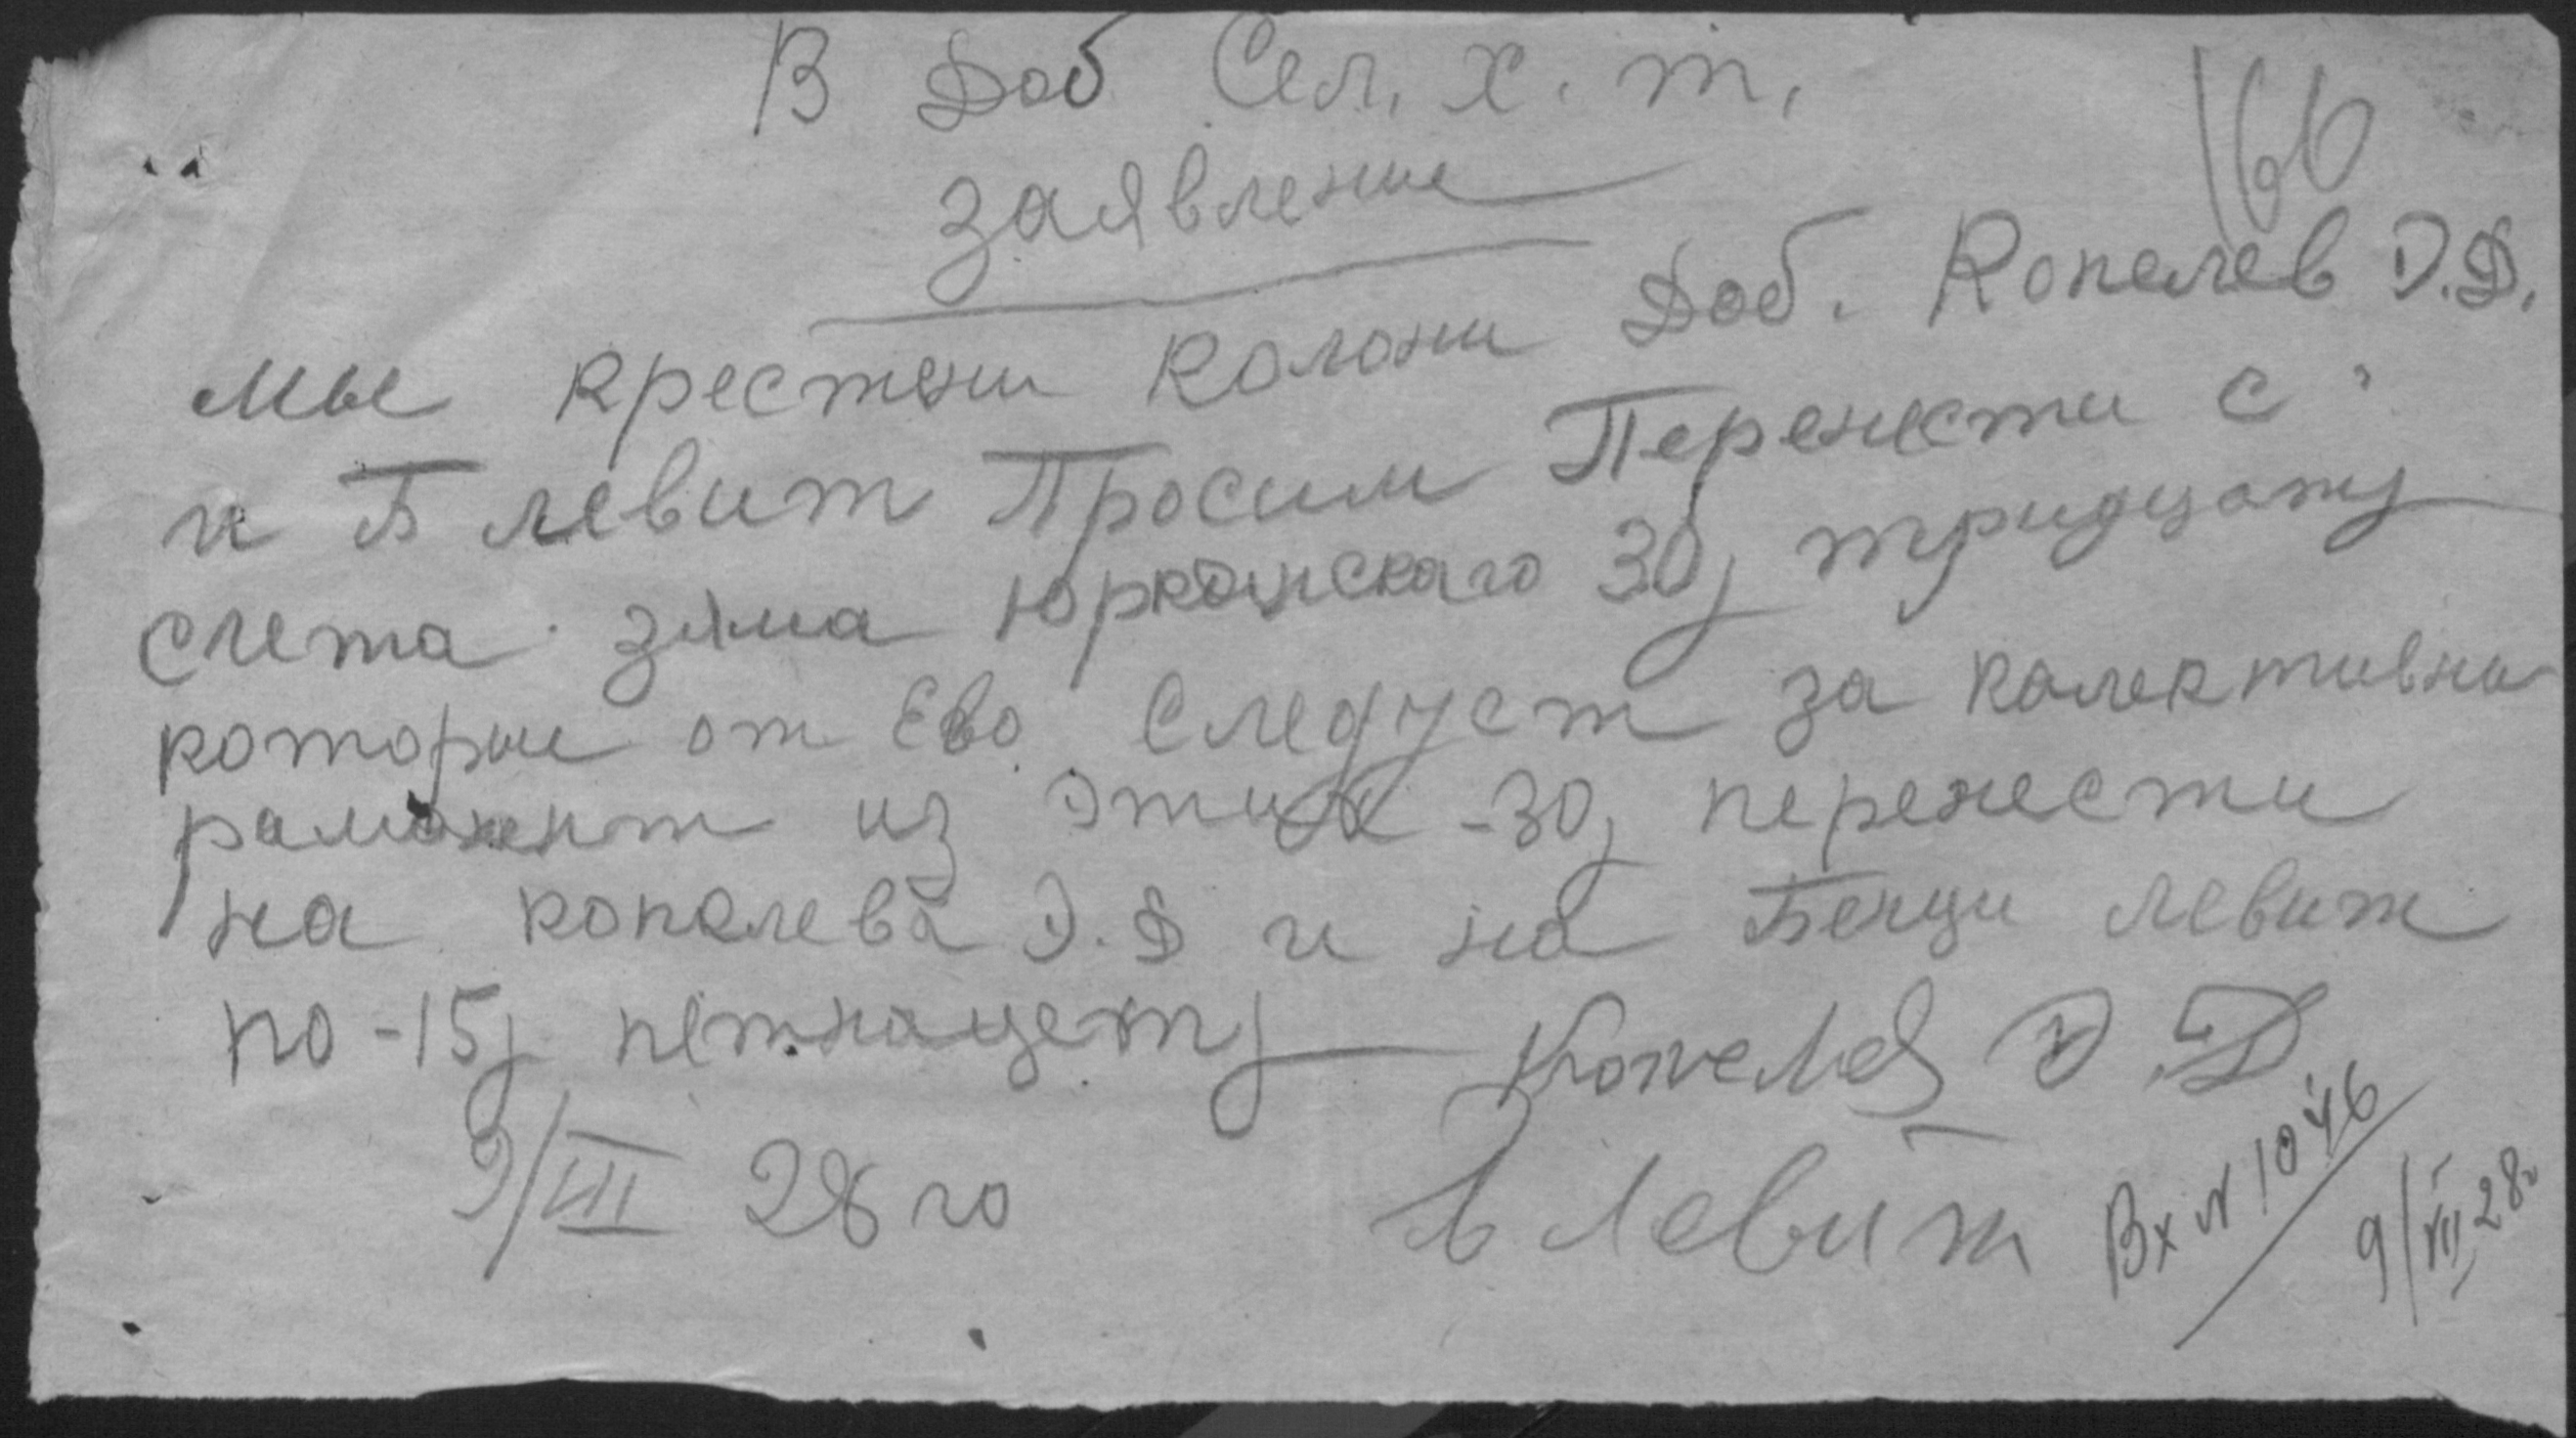 В Доб Сел. х. т.
166
заявление
мы крестяни Колони Доб. Копелев Э.Д.
и Б левит Просим Перенести с
счета зяма Юрковскаго 30р тридцать
которые от Ево следует за колективни
рамонент из этих -30р перенести
на копелева Э.Д и на Бенци левит
по -15р петнацеть
Копелев Э.Д
9/III 28 го
Б Левит
Вх № 1046
9/III 28г